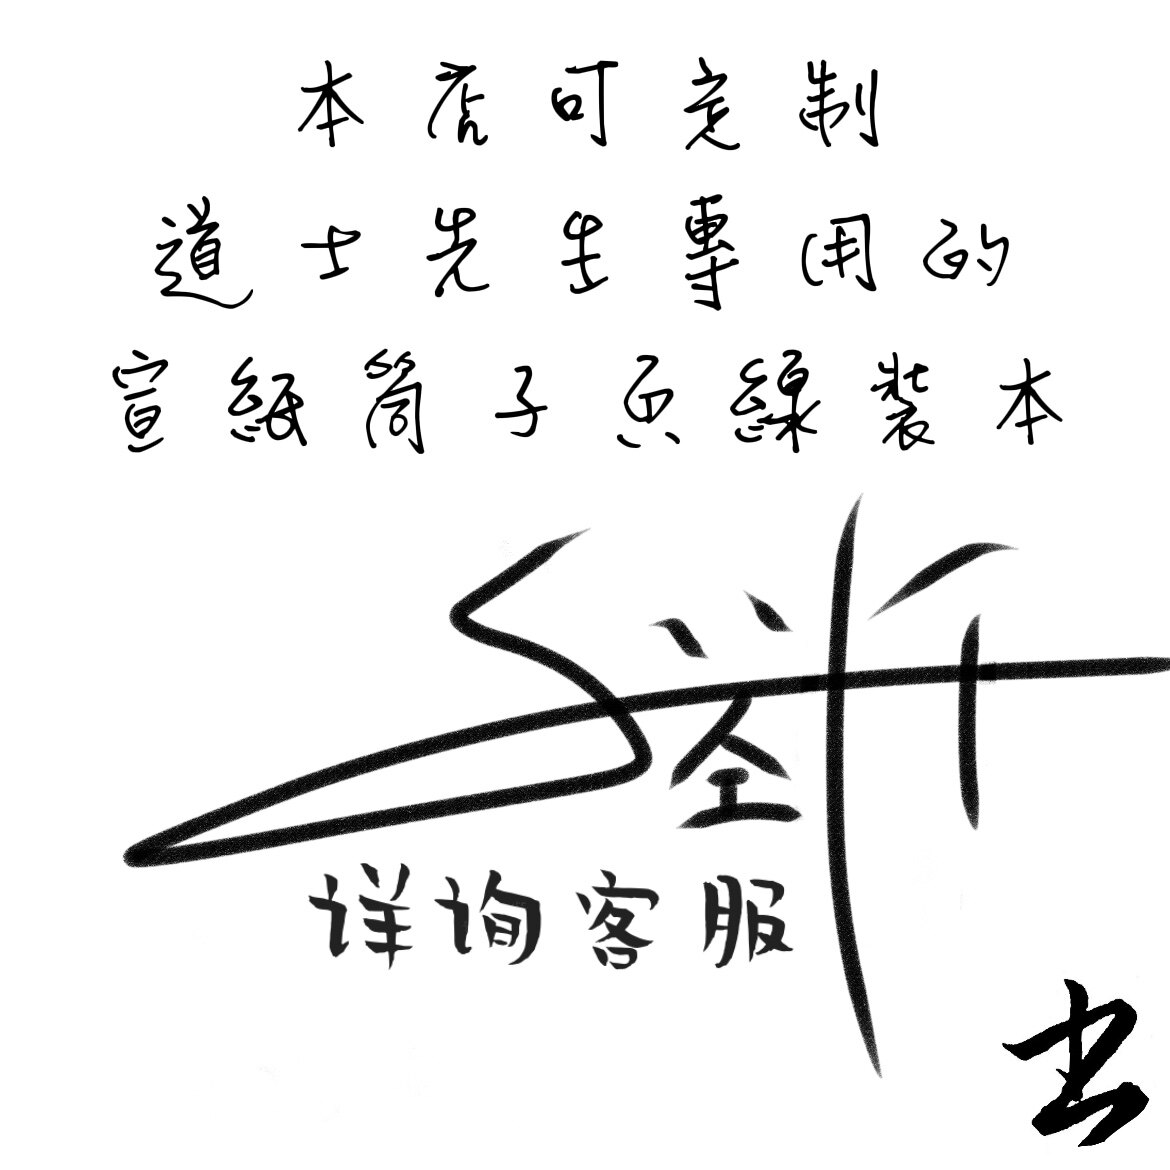 本店可定制
道士先生專用的
宣紙筒子頁線装本
详询客服